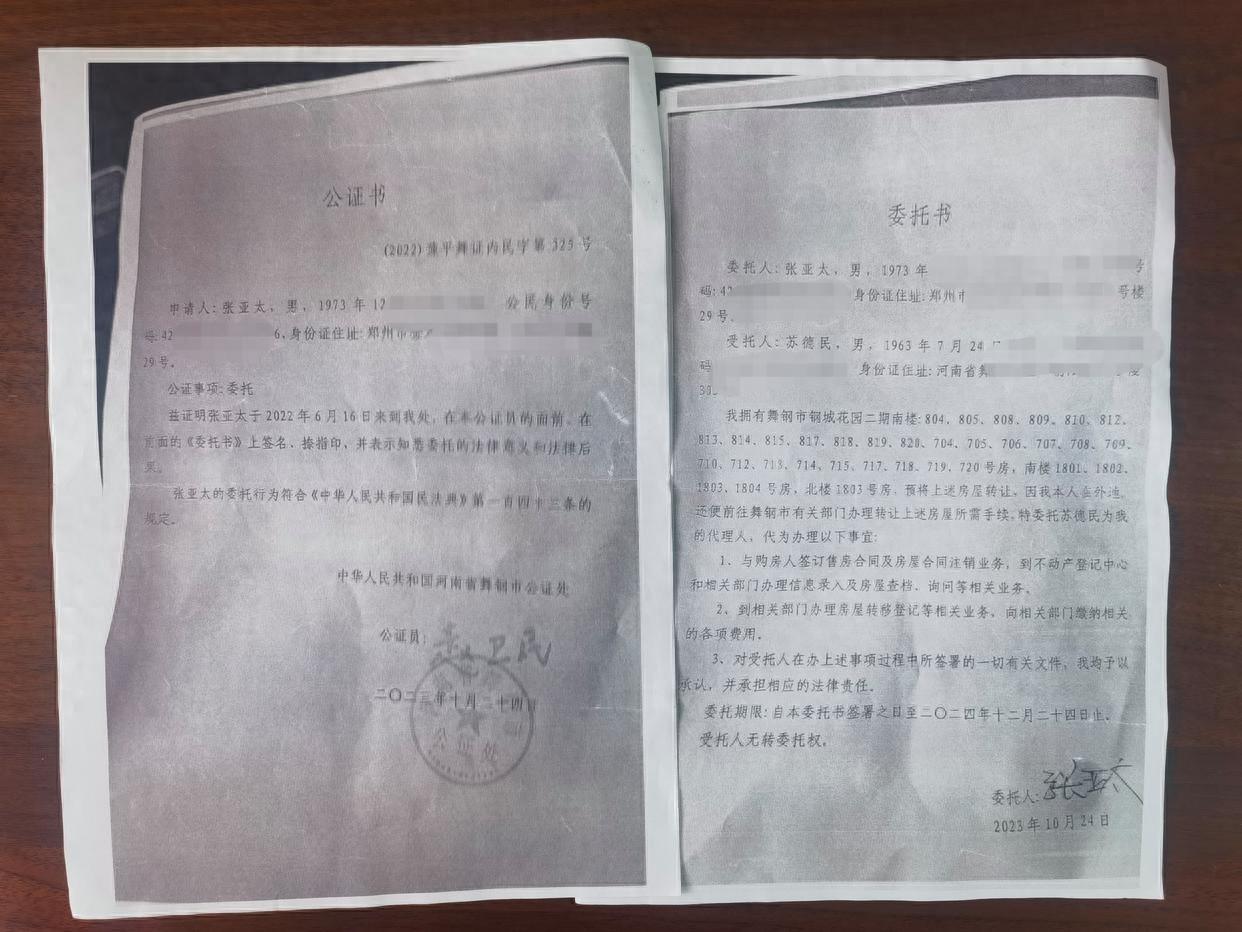 公证书
(2022)豫平舞证内民字第325号
申请人:张亚太，男，1973年12 公民身份号
码:42 6，身份证住址:郑州市
29号。
公证事项:委托
兹证明张亚太于2022年6月16日来到我处，在本公证员的面前，在
前面的《委托书》上签名、捺指印，并表示知悉委托的法律意义和法律后
果。
张亚太的委托行为符合《中华人民共和国民法典》第一百四十三条的
规定。
中华人民共和国河南省舞钢市公证处
公证员:赵卫民
二〇二三年十月二十四日
公证处
委托书
委托人:张亚太，男，1973年 号
码:42 身份证住址:郑州市 号楼
29号。
受托人:苏德民，男，1963年7月24
码 身份证住址:河南省舞 楼
我拥有舞钢市钢城花园二期南楼:804、805、808、809、810、812、
813、814、815、817、818、819、820、704、705、706、707、708、709、
710、712、713、714、715、717、718、719、720号房，南楼1801、1802、
1803、1804号房，北楼1803号房。预将上述房屋转让，因我本人在外地，
还便前往舞钢市有关部门办理转让上述房屋所需手续，特委托苏德民为我
的代理人，代为办理以下事宜:
1、与购房人签订售房合同及房屋合同注销业务，到不动产登记中心
和相关部门办理信息录入及房屋查档、询问等相关业务。
2、到相关部门办理房屋转移登记等相关业务、向相关部门缴纳相关
的各项费用。
3、对受托人在办上述事项过程中所签署的一切有关文件，我均予以
承认，并承担相应的法律责任。
委托期限:自本委托书签署之日至二〇二四年十二月二十四日止。
受托人无转委托权。
委托人:张亚太
2023年10月24日